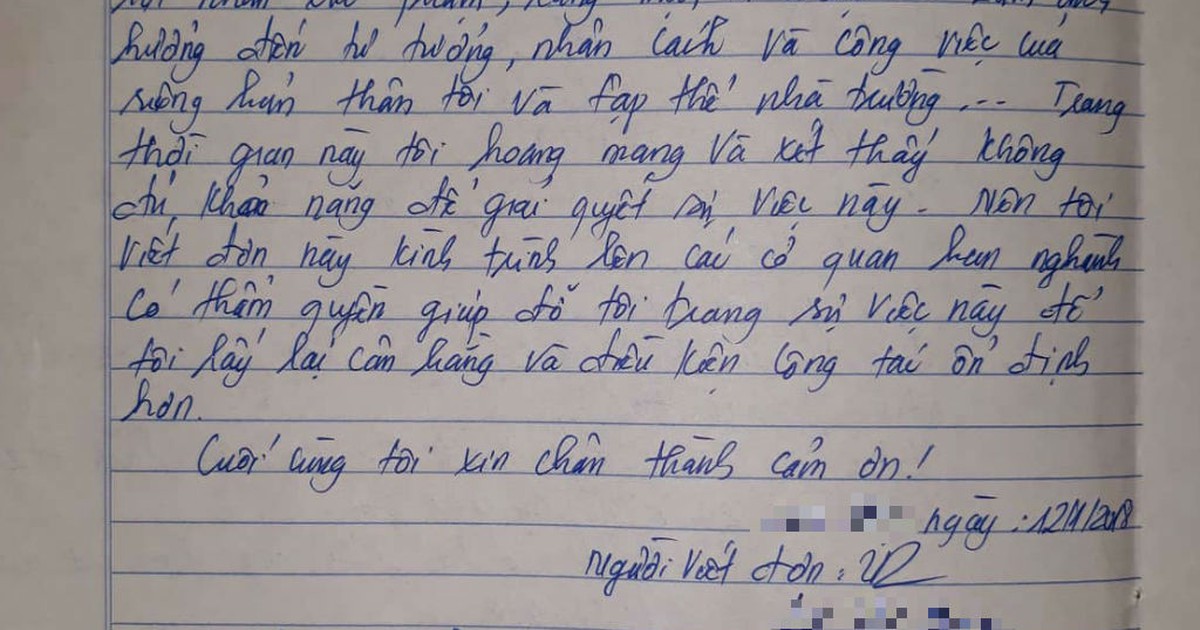 hưởng đến tư tưởng, nhân cách và công việc của
riêng bản thân tôi và tập thể nhà trường ... Trong
thời gian này tôi hoang mang và xét thấy không
đủ khả năng để giải quyết sự việc này. Nên tôi
viết đơn này kính trình lên các cơ quan ban nghành
có thẩm quyền giúp đỡ tôi trong sự việc này để
tôi lấy lại cân bằng và điều kiện công tác ổn định
hơn.
Cuối cùng tôi xin chân thành cảm ơn!
ngày: 12/1/2018
Người viết đơn: